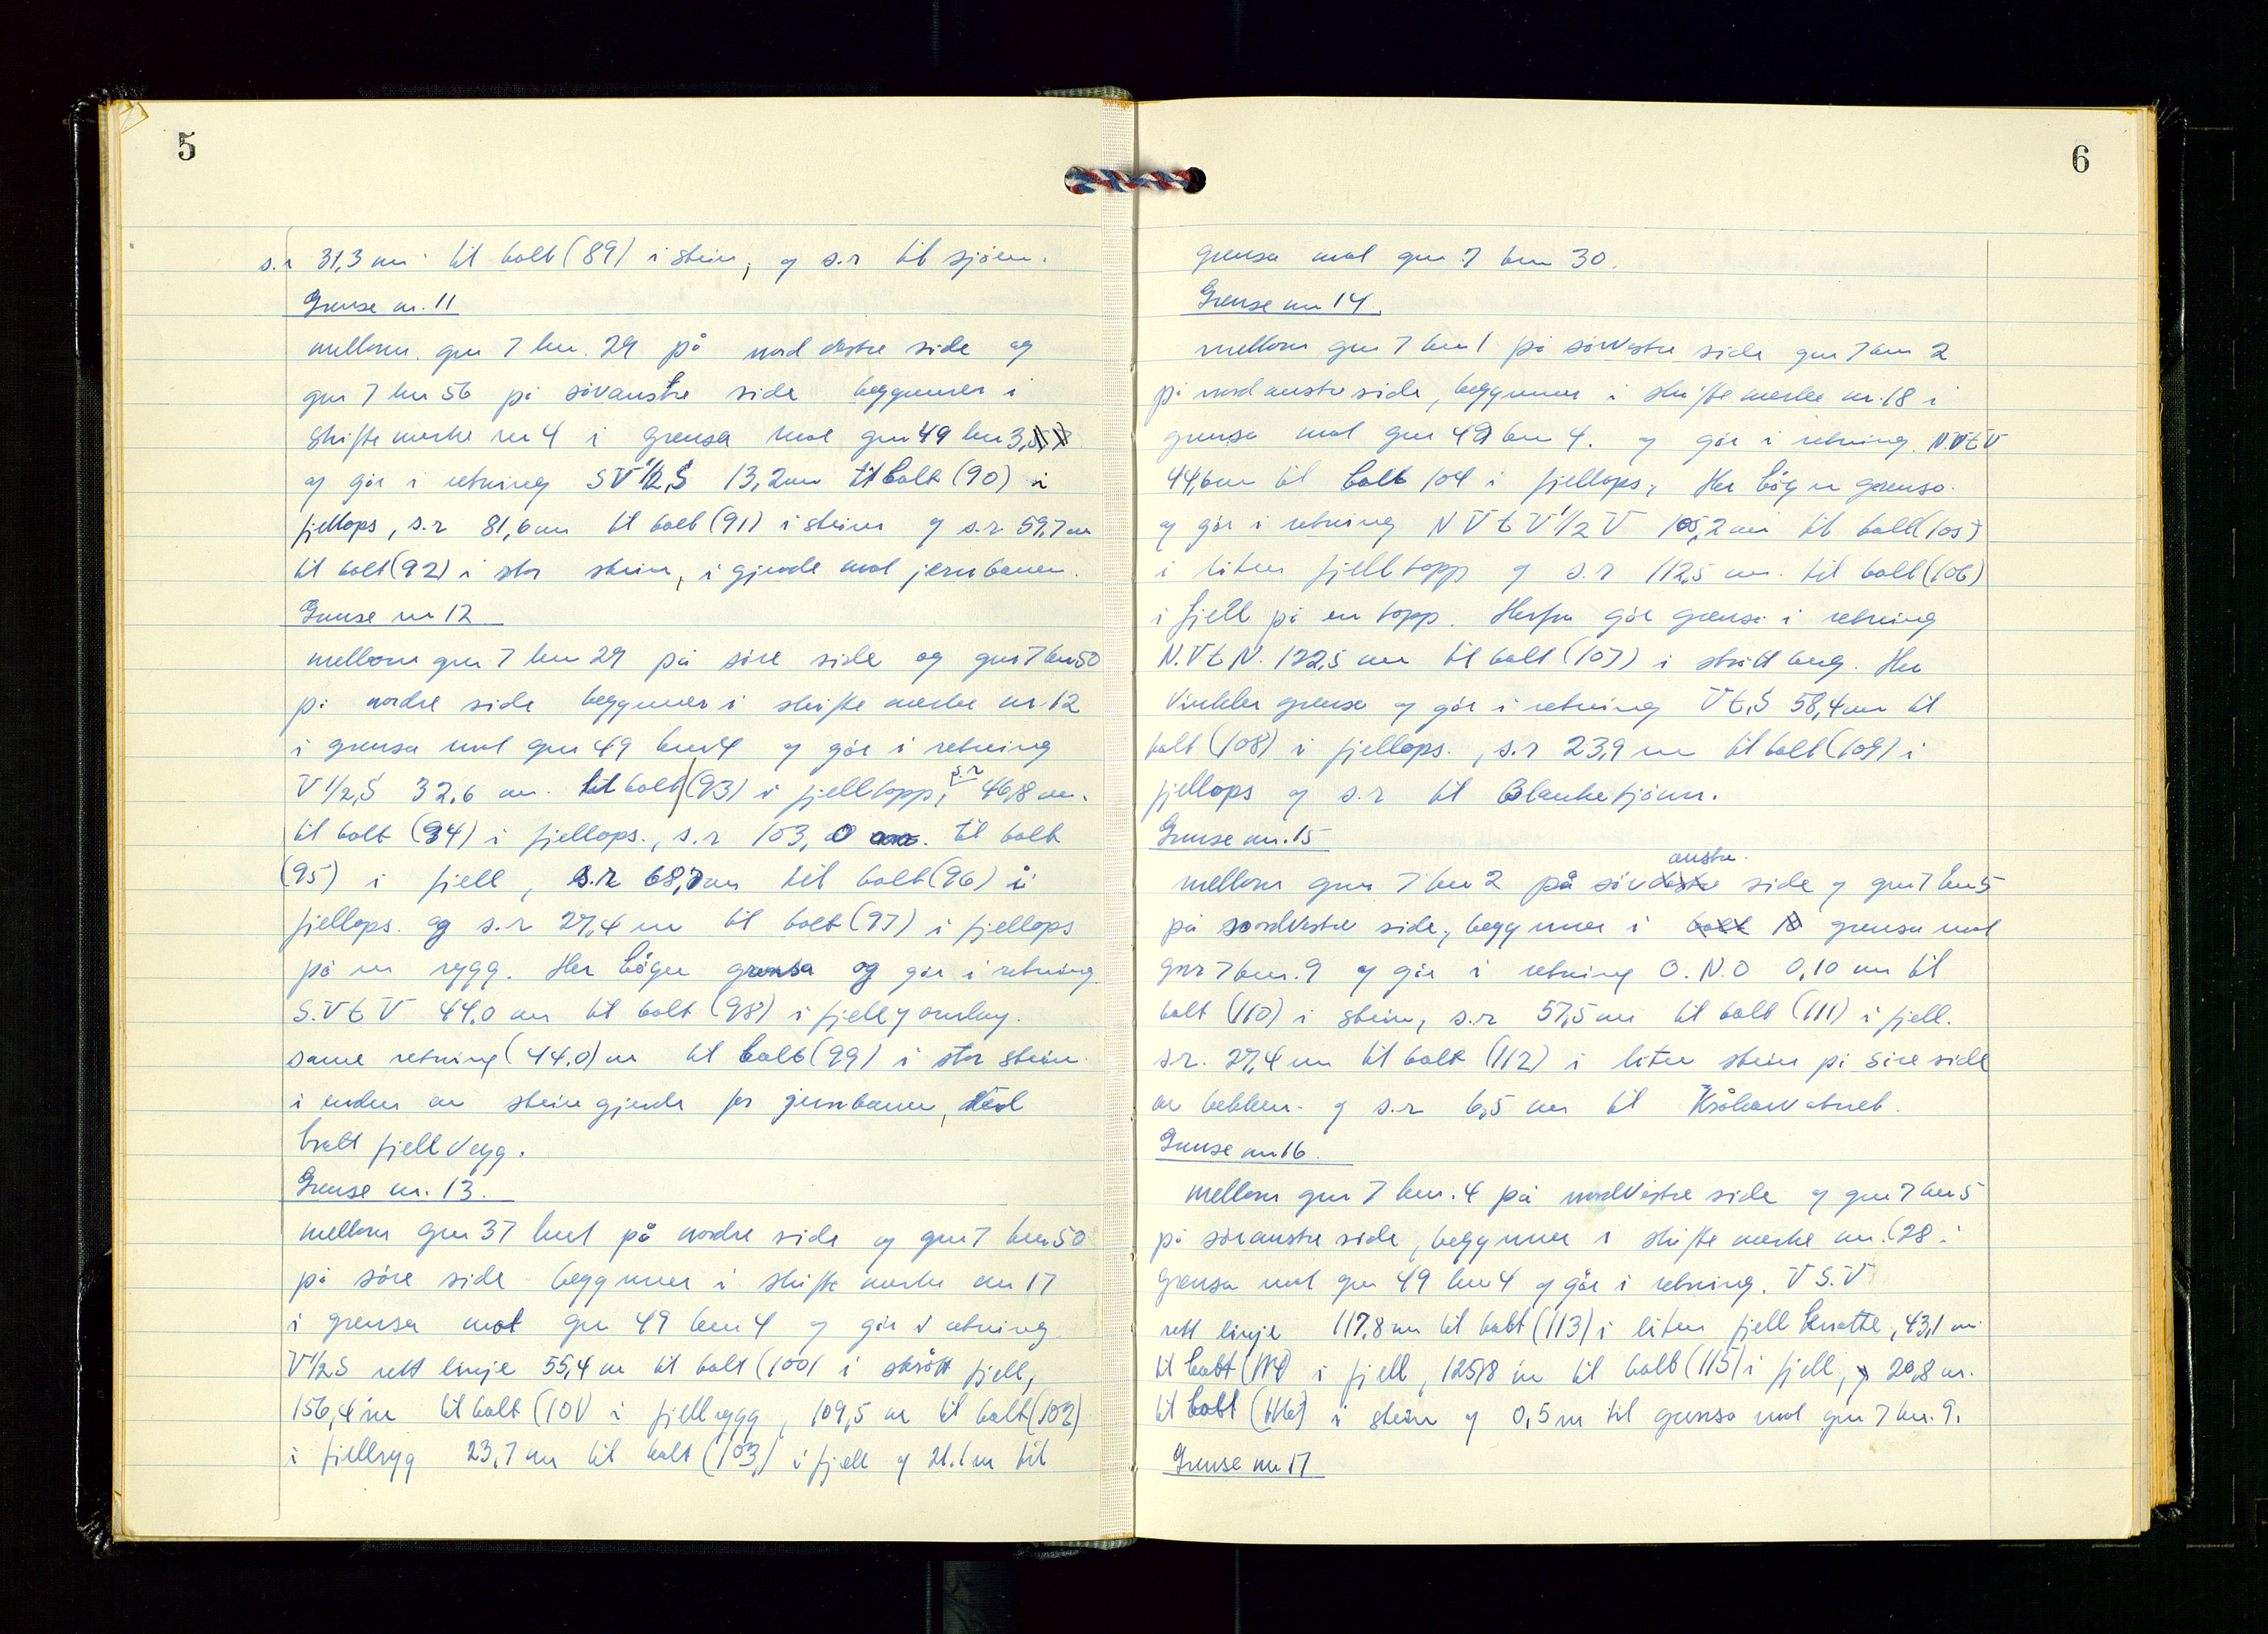 5
s.r 31,3 m til bolt (89) i stein, og s.r til sjøen.
Grense nr. 11
mellom gnr 7 bnr. 29 på nordvestre side og
gnr 7 bnr 56 på søraustre side begynner i
skiftemerke nr 4 i grensa mot gnr 49 bnr 3,
og går i retning SV 1/2 S 13,2 m til bolt (90) i
fjellops, s.r 81,6 m til bolt (91) i stein og s.r 59,7 m
til bolt (92) i stor stein, i gjerde mot jernbanen.
Grense nr 12
mellom gnr 7 bnr 29 på søre side og gnr 7 bnr 50
på nordre side begynner i skiftemerke nr. 12
i grensa mot gnr 49 bnr 4 og går i retning
V 1/2 S 32,6 m. til bolt (93) i fjelltopp, s.r 46,8 m.
til bolt (94) i fjellops., s.r 103,0 m. til bolt
(95) i fjell, s.r 68,7 m til bolt (96) i
fjellops. og s.r 27,4 m til bolt (97) i fjellops
på en rygg. Her bøyer grensa og går i retning
S.V t V 44,0 m til bolt (98) i fjell
same retning (44.0) m til bolt (99) i stor stein
i enden av steingjerde for jernbanen, ved
bratt fjellvegg.
Grense nr. 13.
mellom gnr 37 bnr 1 på nordre side og gnr 7 bnr 50
på søre side begynner i skiftemerke nr 17
i grensa mot gnr 49 bnr 4 og går i retning
V 1/2 S rett linje 55,4 m til bolt (100) i skrått fjell,
156,4 m til bolt (101) i fjellrygg, 109,5 m til bolt (102)
i fjellrygg 23,7 m til bolt (103) i fjell og 21.1 m til
6
grensa mot gnr 7 bnr 30.
Grense nr 14.
mellom gnr 7 bnr 1 på sørvestre side gnr 7 bnr 2
på nordaustre side, begynner i skiftemerke nr. 18 i
grensa mot gnr 49 bnr 4. og går i retning N.V t V
44,6 m til bolt 104 i fjellops, Her bøyer grensa
og går i retning N V t V 1/2 V 105,2 m til bolt (105)
i liten fjelltopp og s.r 112,5 m. til bolt (106)
i fjell på en topp. Herfra går grensa i retning
N.V t N. 122,5 m til bolt (107) i skrått berg. Her
vinkler grensa og går i retning V t S 58,4 m til
bolt (108) i fjellops., s.r 23,9 m til bolt (109) i
fjellops og s.r til Blanketjønn.
Grense nr. 15
austre.
mellom gnr 7 bnr 2 på sørvestre side og gnr 7 bnr 5
på nordvestre side, begynner i bolt grensa mot
gnr 7 bnr. 9 og går i retning O.N.O 0,10 m til
bolt (110) i stein, s.r 57,5 m til bolt (111) i fjell.
s.r. 27,4 m til bolt (112) i liten stein på søre side
av bekken. og s.r 6,5 m til Kråkevatnet.
Grense nr 16.
mellom gnr 7 bnr. 4 på nordvestre side og gnr 7 bnr 5
på søraustre side, begynner i skiftemerke nr. (28 i
grensa mot gnr 49 bnr 4 og går i retning. V S.V
rett linje 117,8 m til bolt (113) i liten fjellknatte, 43,1 m
til bolt (114) i fjell, 125,8 m til bolt (115) i fjell, og 20,8 m.
til bolt (116) i stein og 0,5 m til grensa mot gnr 7 bnr. 9.
Grense nr 17